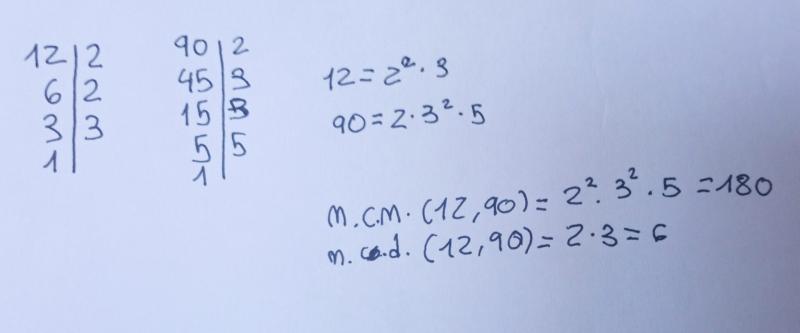 12 | 2
6 | 2
3 | 3
1 |
90 | 2
45 | 3
15 | 3
5 | 5
1 |
12 = 2² · 3
90 = 2 · 3² · 5
m.c.m. (12, 90) = 2² · 3² · 5 = 180
m.c.d. (12, 90) = 2 · 3 = 6